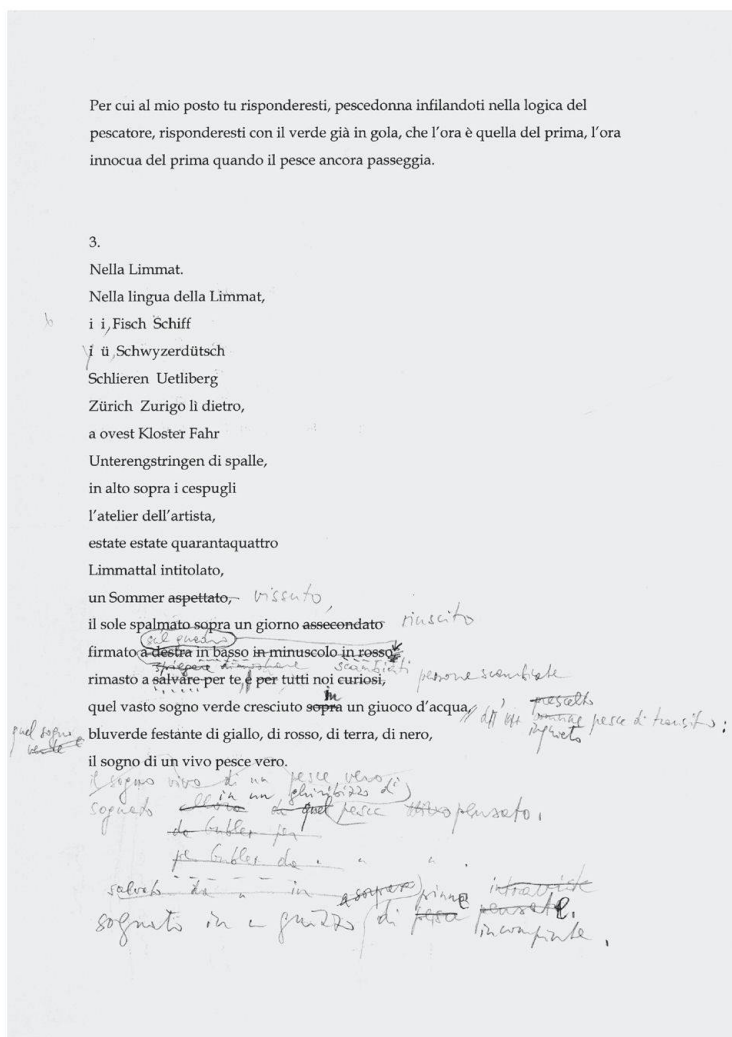 Per cui al mio posto tu risponderesti, pescedonna infilandoti nella logica del
pescatore, risponderesti con il verde già in gola, che l'ora è quella del prima, l'ora
innocua del prima quando il pesce ancora passeggia.
3.
Nella Limmat.
Nella lingua della Limmat,
i i, Fisch Schiff
i ü, Schwyzerdütsch
Schlieren Uetliberg
Zürich Zurigo lì dietro,
a ovest Kloster Fahr
Unterengstringen di spalle,
in alto sopra i cespugli
l'atelier dell'artista,
estate estate quarantaquattro
Limmattal intitolato,
un Sommer aspettato, vissuto,
il sole spalmato sopra un giorno assecondato riuscito
sul quadro
firmato a destra in basso in minuscolo in rosso,
scambiati
rimasto a salvare per te, e per tutti noi curiosi, persone scambiate
in
quel vasto sogno verde cresciuto sopra un giuoco d'acqua, pesce di transito:
prescelto
inquieto
quel sogno
verde e
bluverde festante di giallo, di rosso, di terra, di nero,
il sogno di un vivo pesce vero.
il sogno vivo di un pesce vero
in un ghiribizzo di
sognato quel pesce pensato.
salvato da in pinne
sognato in un guizzo di pesca pensate.
incompiute.